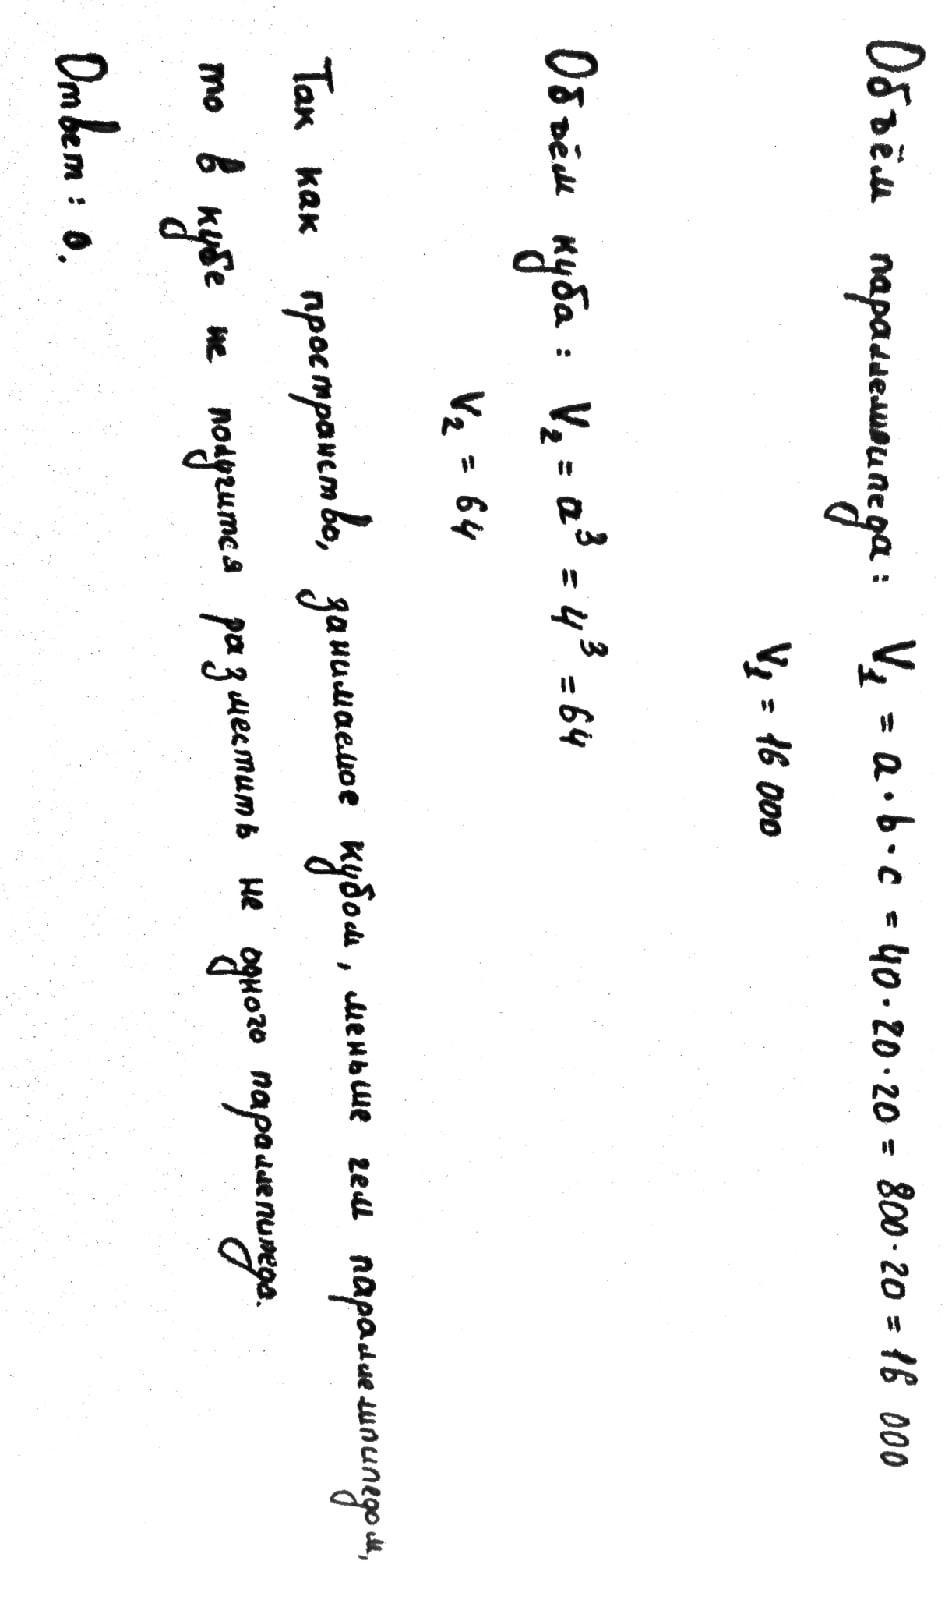 Объём параллелепипеда: V₁ = a·b·c = 40·20·20 = 800·20 = 16 000
V₁ = 16 000
Объём куба: V₂ = a³ = 4³ = 64
V₂ = 64
Так как пространство, занимаемое кубом, меньше чем параллелепипедом,
то в кубе не получится разместить не одного параллепипеда.
Ответ: 0.